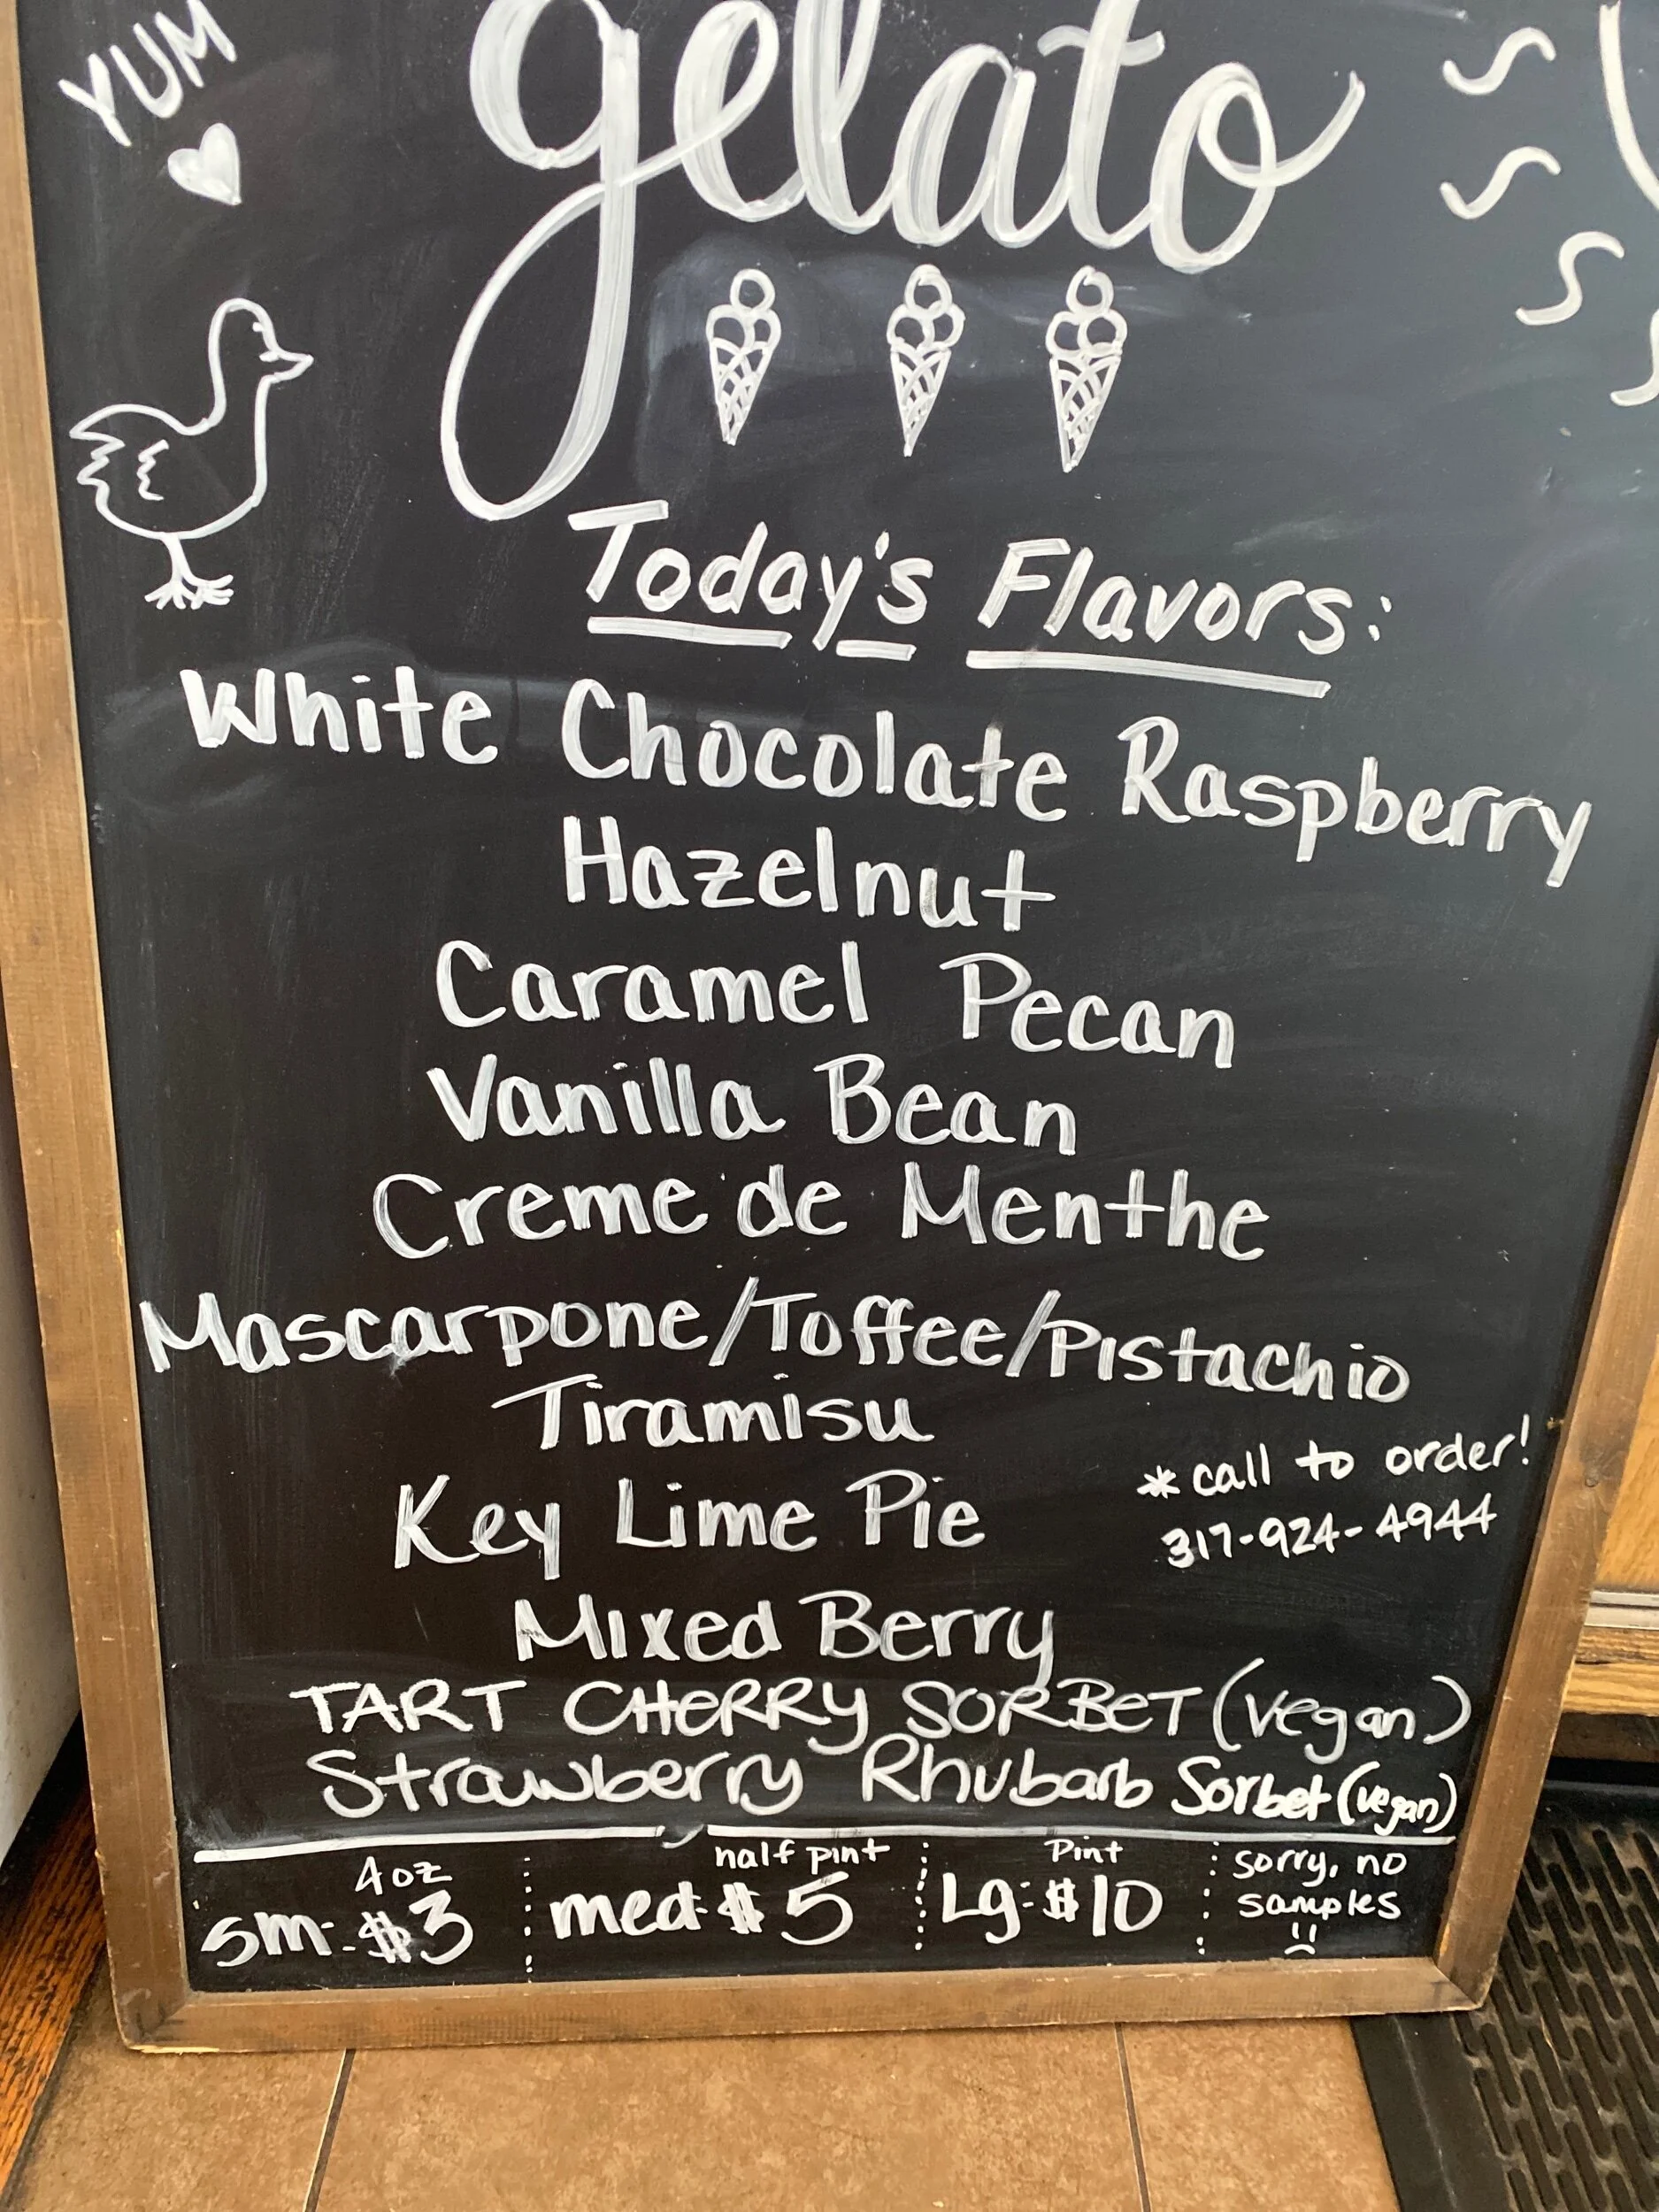 YUM
gelato
Today's Flavors:
White Chocolate Raspberry
Hazelnut
Caramel Pecan
Vanilla Bean
Creme de Menthe
Mascarpone/Toffee/Pistachio
Tiramisu
*call to order!
317-924-4944
Key Lime Pie
Mixed Berry
TART CHERRY SORBET (vegan)
Strawberry Rhubarb Sorbet (vegan)
4oz
sm: $3
half pint
med: $5
Pint
Lg: $10
sorry, no
samples